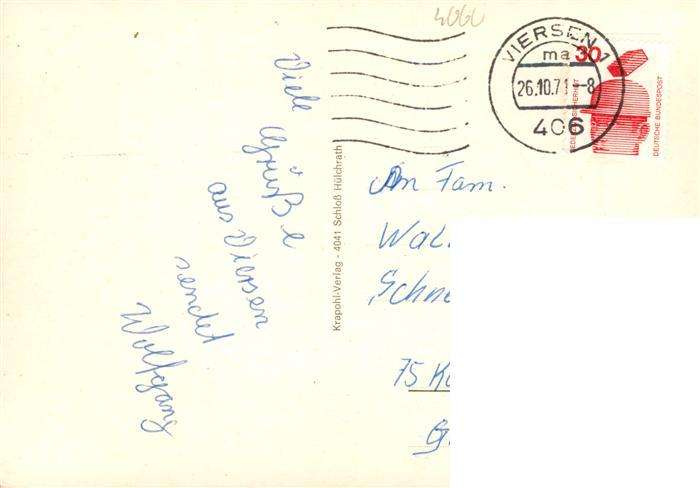 4060
VIERSEN 1
ma
26.10.71-8
406
30
JEDERZEIT SICHERHEIT
DEUTSCHE BUNDESPOST
Viele
Grüße
aus Viersen
sendet
Wolfgang
Krapohl-Verlag - 4041 Schloß Hülchrath
An Fam.
Wal
Schne
75 K